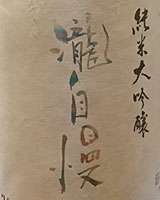 純米大吟醸
瀧自慢